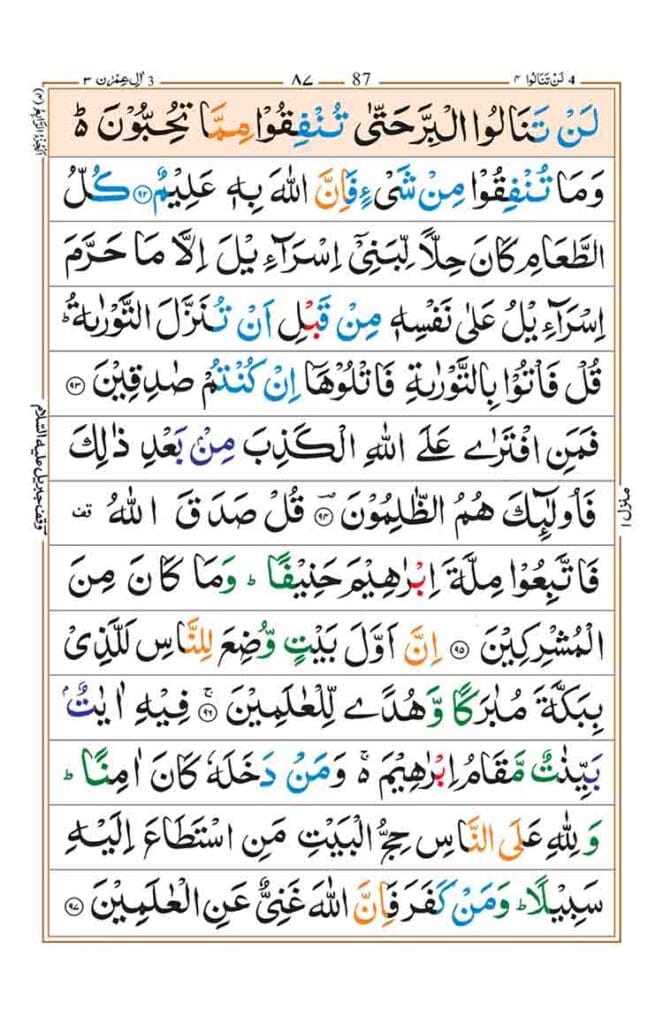 4 لَنْ تَنَالُوا ٤ 87 ٨٧ 3 اٰلِ عِمْرٰن ٣
اَلْجُزْءُ الرَّابِعُ (٤)
لَنْ تَنَالُوا الْبِرَّ حَتّٰى تُنْفِقُوْا مِمَّا تُحِبُّوْنَ ؕ
وَمَا تُنْفِقُوْا مِنْ شَىْءٍ فَاِنَّ اللّٰهَ بِهٖ عَلِيْمٌ ﴿٩٢﴾ كُلُّ
الطَّعَامِ كَانَ حِلًّا لِّبَنِىْۤ اِسْرَآءِيْلَ اِلَّا مَا حَرَّمَ
اِسْرَآءِيْلُ عَلٰى نَفْسِهٖ مِنْ قَبْلِ اَنْ تُنَزَّلَ التَّوْرٰىةُ ؕ
قُلْ فَاْتُوْا بِالتَّوْرٰىةِ فَاتْلُوْهَاۤ اِنْ كُنْتُمْ صٰدِقِيْنَ ﴿٩٣﴾
فَمَنِ افْتَرٰى عَلَى اللّٰهِ الْكَذِبَ مِنْۢ بَعْدِ ذٰلِكَ
فَاُولٰٓئِكَ هُمُ الظّٰلِمُوْنَ ﴿٩٤﴾ قُلْ صَدَقَ اللّٰهُ قف
فَاتَّبِعُوْا مِلَّةَ اِبْرٰهِيْمَ حَنِيْفًا ؕ وَمَا كَانَ مِنَ
الْمُشْرِكِيْنَ ﴿٩٥﴾ اِنَّ اَوَّلَ بَيْتٍ وُّضِعَ لِلنَّاسِ لَلَّذِىْ
بِبَكَّةَ مُبٰرَكًا وَّهُدًى لِّلْعٰلَمِيْنَ ﴿٩٦﴾ فِيْهِ اٰيٰتٌۢ
بَيِّنٰتٌ مَّقَامُ اِبْرٰهِيْمَ ۚ وَمَنْ دَخَلَهٗ كَانَ اٰمِنًا ؕ
وَلِلّٰهِ عَلَى النَّاسِ حِجُّ الْبَيْتِ مَنِ اسْتَطَاعَ اِلَيْهِ
سَبِيْلًا ؕ وَمَنْ كَفَرَ فَاِنَّ اللّٰهَ غَنِىٌّ عَنِ الْعٰلَمِيْنَ ﴿٩٧﴾
وقف جبريل عليه السلام
منزل ١